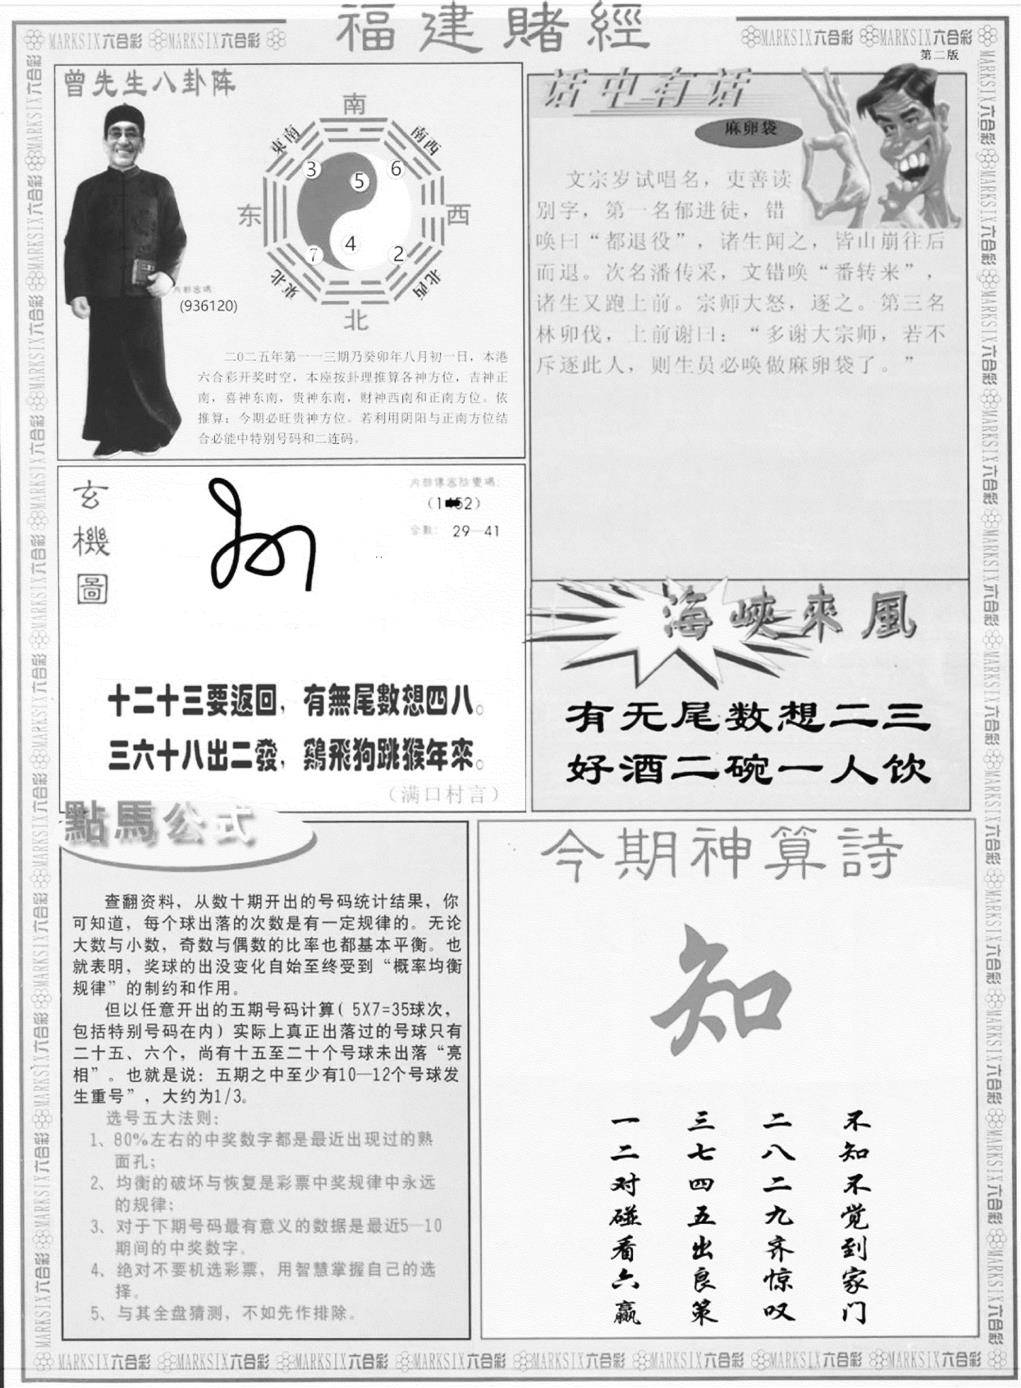 福建賭經
MARKSIX六合彩 MARKSIX六合彩
MARKSIX六合彩 MARKSIX六合彩
第二版
曾先生八卦阵
南
東南
南西
3
5
6
东
西
7
4
2
東北
北西
北
(936120)
二0二五年第一一三期乃癸卯年八月初一日，本港
六合彩开奖时空，本座按卦理推算各神方位，吉神正
南，喜神东南，贵神东南，财神西南和正南方位。依
推算：今期必旺贵神方位。若利用阴阳与正南方位结
合必能中特别号码和二连码。
话中有话
麻卵袋
文宗岁试唱名，吏善读
别字，第一名郁进徒，错
唤曰“都退役”，诸生闻之，皆山崩往后
而退。次名潘传采，文错唤“番转来”，
诸生又跑上前。宗师大怒，逐之。第三名
林卯伐，上前谢曰：“多谢大宗师，若不
斥逐此人，则生员必唤做麻卵袋了。”
玄機圖
29—41
十二十三要返回，有無尾數想四八。
三六十八出二發，鷄飛狗跳猴年來。
（满口村言）
海峽來風
有无尾数想二三
好酒二碗一人饮
點馬公式
查翻资料，从数十期开出的号码统计结果，你
可知道，每个球出落的次数是有一定规律的。无论
大数与小数，奇数与偶数的比率也都基本平衡。也
就表明，奖球的出没变化自始至终受到“概率均衡
规律”的制约和作用。
但以任意开出的五期号码计算( 5X7=35球次，
包括特别号码在内）实际上真正出落过的号球只有
二十五、六个，尚有十五至二十个号球未出落“亮
相”。也就是说：五期之中至少有10—12个号球发
生重号”，大约为1/3。
选号五大法则：
1、80%左右的中奖数字都是最近出现过的熟
面孔；
2、均衡的破坏与恢复是彩票中奖规律中永远
的规律；
3、对于下期号码最有意义的数据是最近5—10
期间的中奖数字。
4、绝对不要机选彩票，用智慧掌握自己的选
择。
5、与其全盘猜测，不如先作排除。
今期神算詩
知
不知不觉到家门
二八二九齐惊叹
三七四五出良策
一二对碰看六赢
MARKSIX六合彩 MARKSIX六合彩 MARKSIX六合彩 MARKSIX六合彩 MARKSIX六合彩 MARKSIX六合彩 MARKSIX六合彩 MARKSIX六合彩